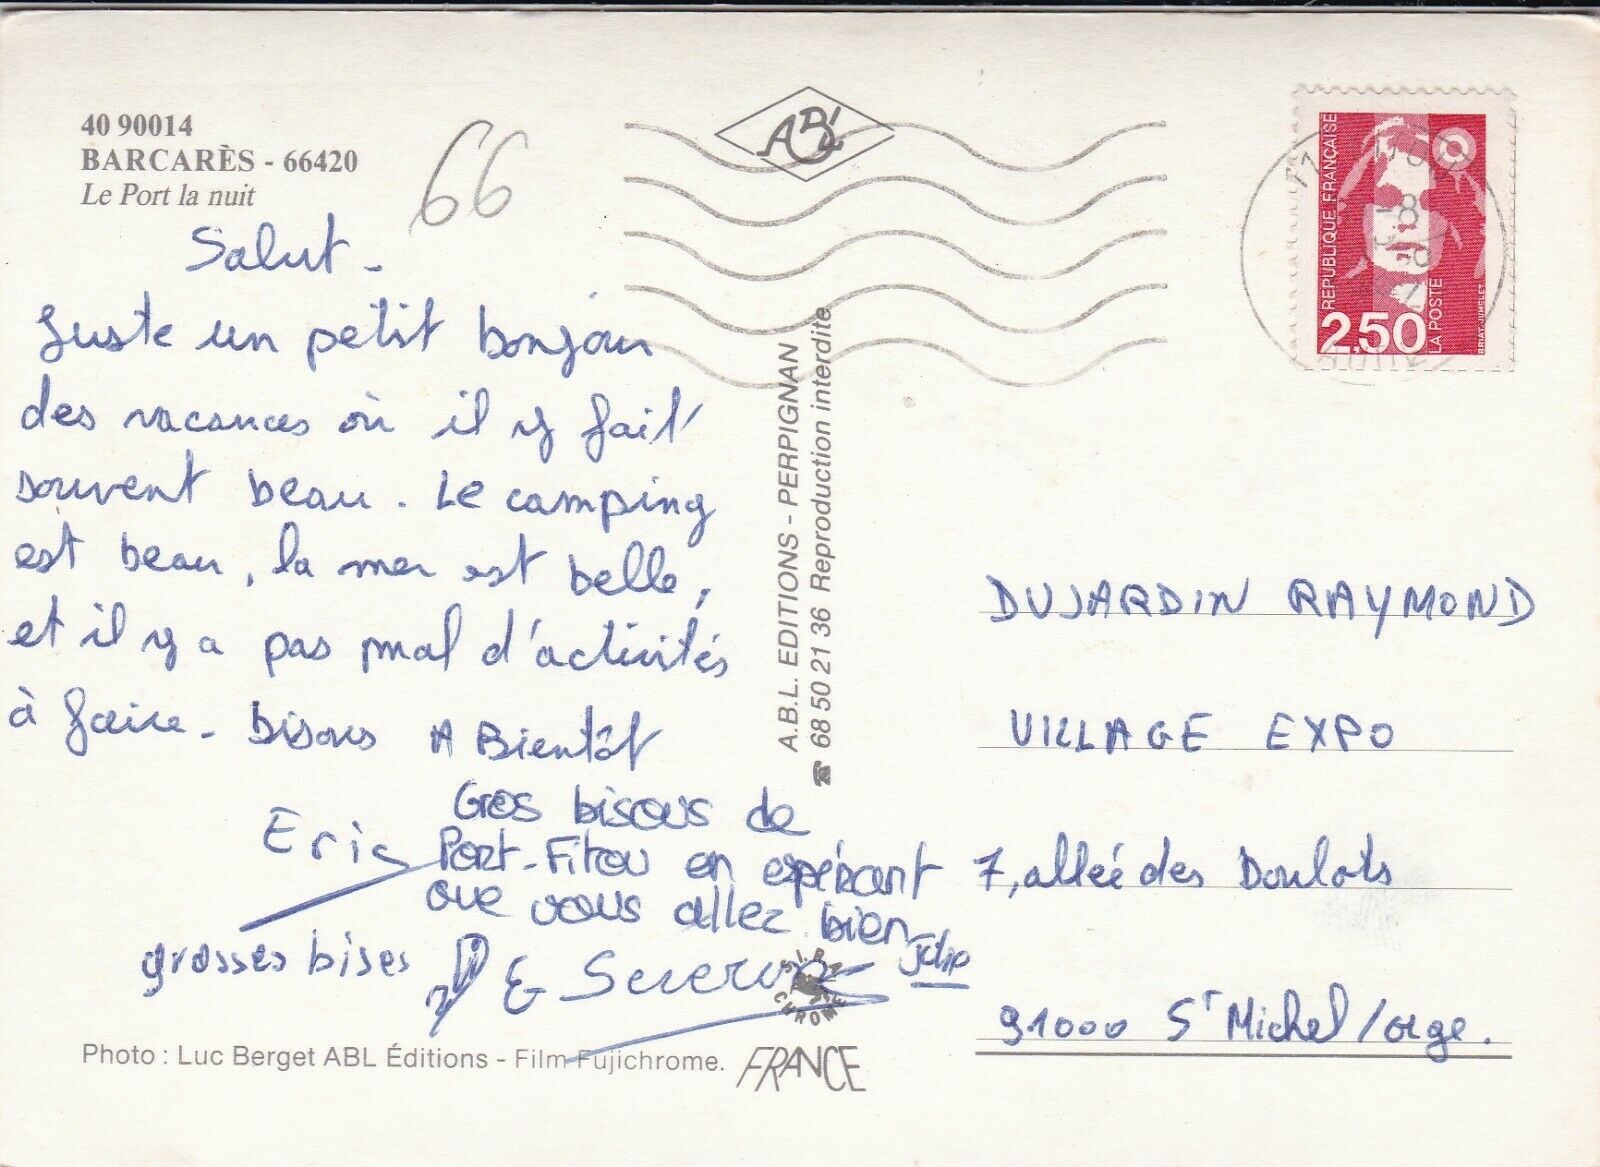 40 90014
BARCARÈS - 66420
Le Port la nuit
66
Salut -
Juste un petit bonjour
des vacances où il y fait
souvent beau. Le camping
est beau, la mer est belle,
et il y a pas mal d'activités
à faire - bisous A Bientôt
Eric
Gros bisous de
Port-Fitou en espérant
que vous allez bien
grosses bises
ABL
A.B.L. EDITIONS - PERPIGNAN
☎ 68 50 21 36 Reproduction interdite
REPUBLIQUE FRANÇAISE
2,50
LA POSTE
BRIAT-JUMELET
DUJARDIN RAYMOND
VILLAGE EXPO
7, allée des Doulots
91000 St Michel/orge.
Photo : Luc Berget ABL Éditions - Film Fujichrome.
CHROME
FRANCE